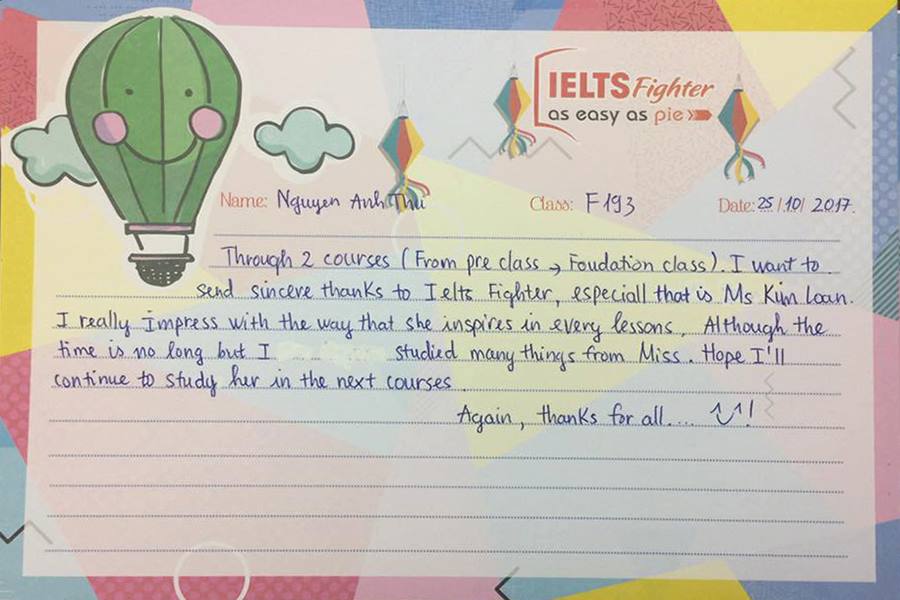 IELTS Fighter
as easy as pie
Name: Nguyen Anh Thu Class: F193 Date: 25/10/2017.
Through 2 courses (From pre class → Foudation class). I want to
send sincere thanks to Ielts Fighter, especiall that is Ms Kim Loan.
I really impress with the way that she inspires in every lessons. Although the
time is no long but I studied many things from Miss. Hope I'll
continue to study her in the next courses.
Again, thanks for all....